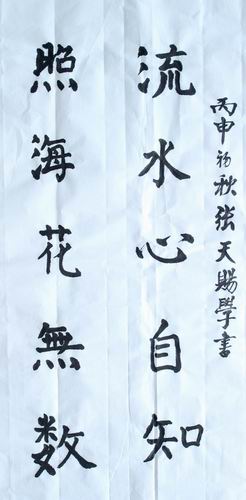 照海花無数
流水心自知
丙申初秋張天賜學書